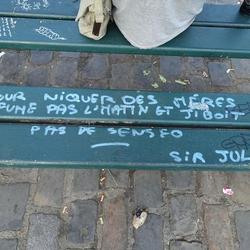 OUR NIQUER DES MÈRES
FUME PAS L'MATIN ET J'BOIT
PAS DE SENSEO
SIR JUL